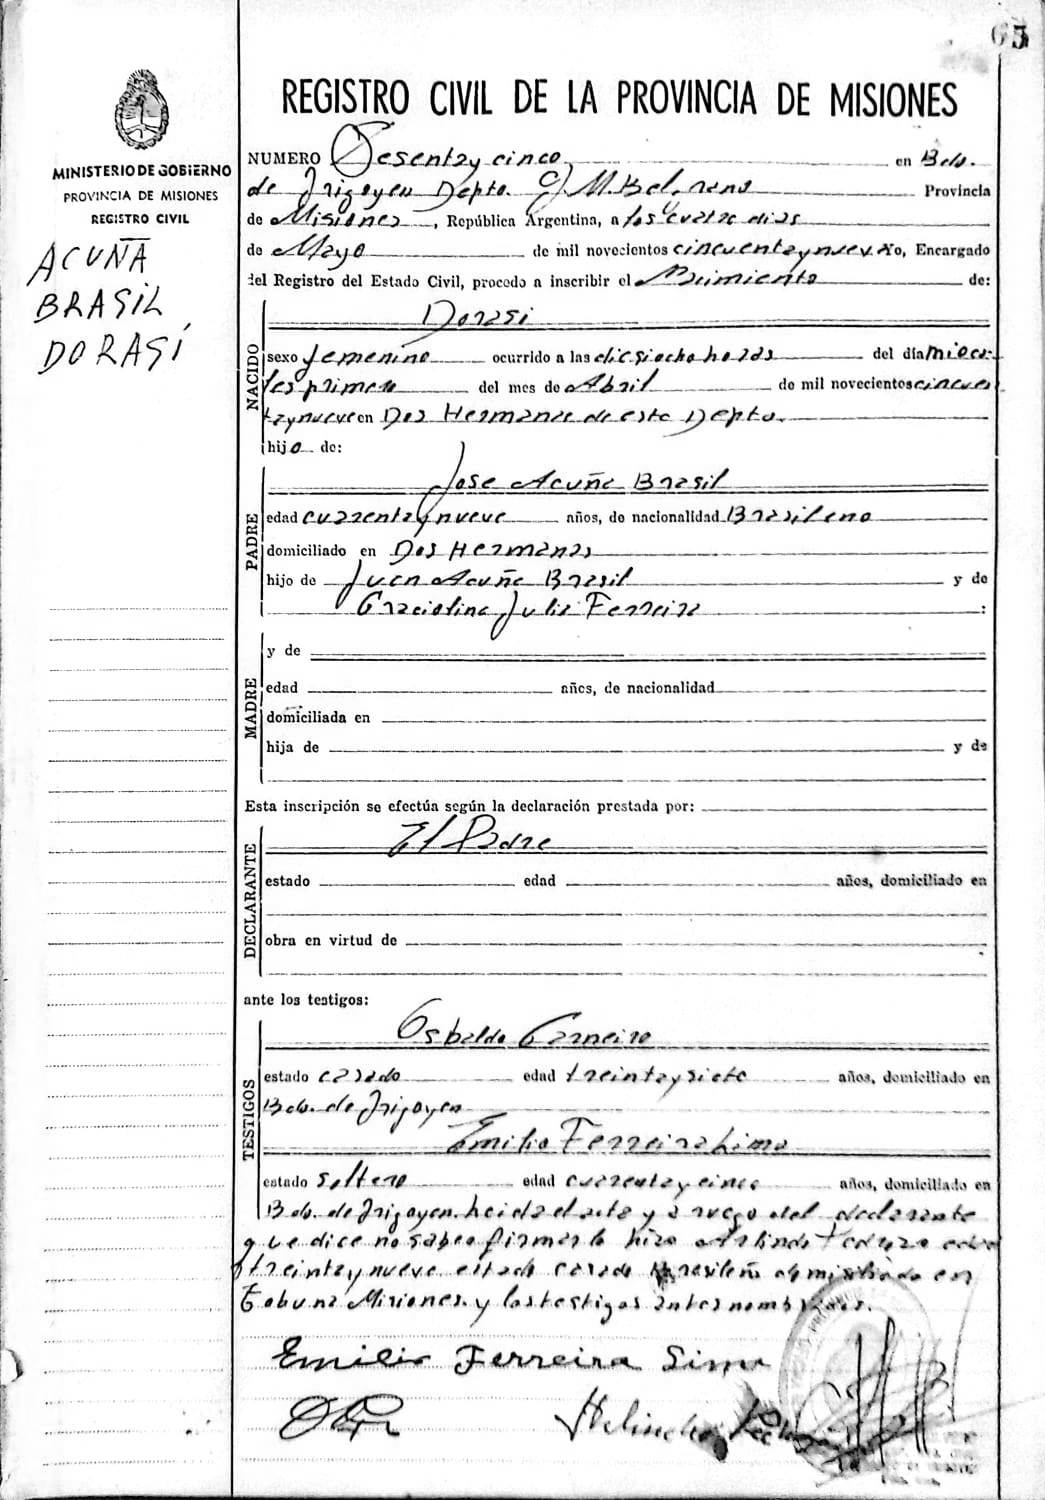 65
REGISTRO CIVIL DE LA PROVINCIA DE MISIONES
MINISTERIO DE GOBIERNO
PROVINCIA DE MISIONES
REGISTRO CIVIL
ACUÑA
BRASIL
DORASÍ
NUMERO Sesentay cinco en Bdo.
de Irigoyen Depto. G/M. Belgrano Provincia
de Misiones, República Argentina, a los cuatro dias
de Mayo de mil novecientos cincuentaynueve Yo, Encargado
del Registro del Estado Civil, procedo a inscribir el Nacimiento de:
NACIDO
Dorasi
sexo femenino ocurrido a las diesiocho horas del día mierco-
les primero del mes de Abril de mil novecientos cincuen
taynueve en Dos Hermanas de este Depto.
hijo de:
PADRE
Jose Acuña Brasil
edad cuarentaynueve años, de nacionalidad Brasileno
domiciliado en Dos Hermanas
hijo de Juan Acuña Brasil y de
Graciolina Julia Ferreira :
MADRE
y de
edad años, de nacionalidad
domiciliada en
hija de y de
Esta inscripción se efectúa según la declaración prestada por:
DECLARANTE
El Padre
estado edad años, domiciliado en
obra en virtud de
ante los testigos:
TESTIGOS
Osbaldo Carneiro
estado casado edad treintaysiete años, domiciliado en
Bdo. de Irigoyen
Emilio Ferreira Lima
estado Soltero edad cuarentaycinco años, domiciliado en
Bdo. de Irigoyen. Leida el acta y a ruego del declarante
que dice no saber firmar lo hizo Arlindo
treintaynueve estado casado Brasileño domisiliado en
Tobuna Misiones. y los testigos antes nombrados.
Emilio Ferreira Lima